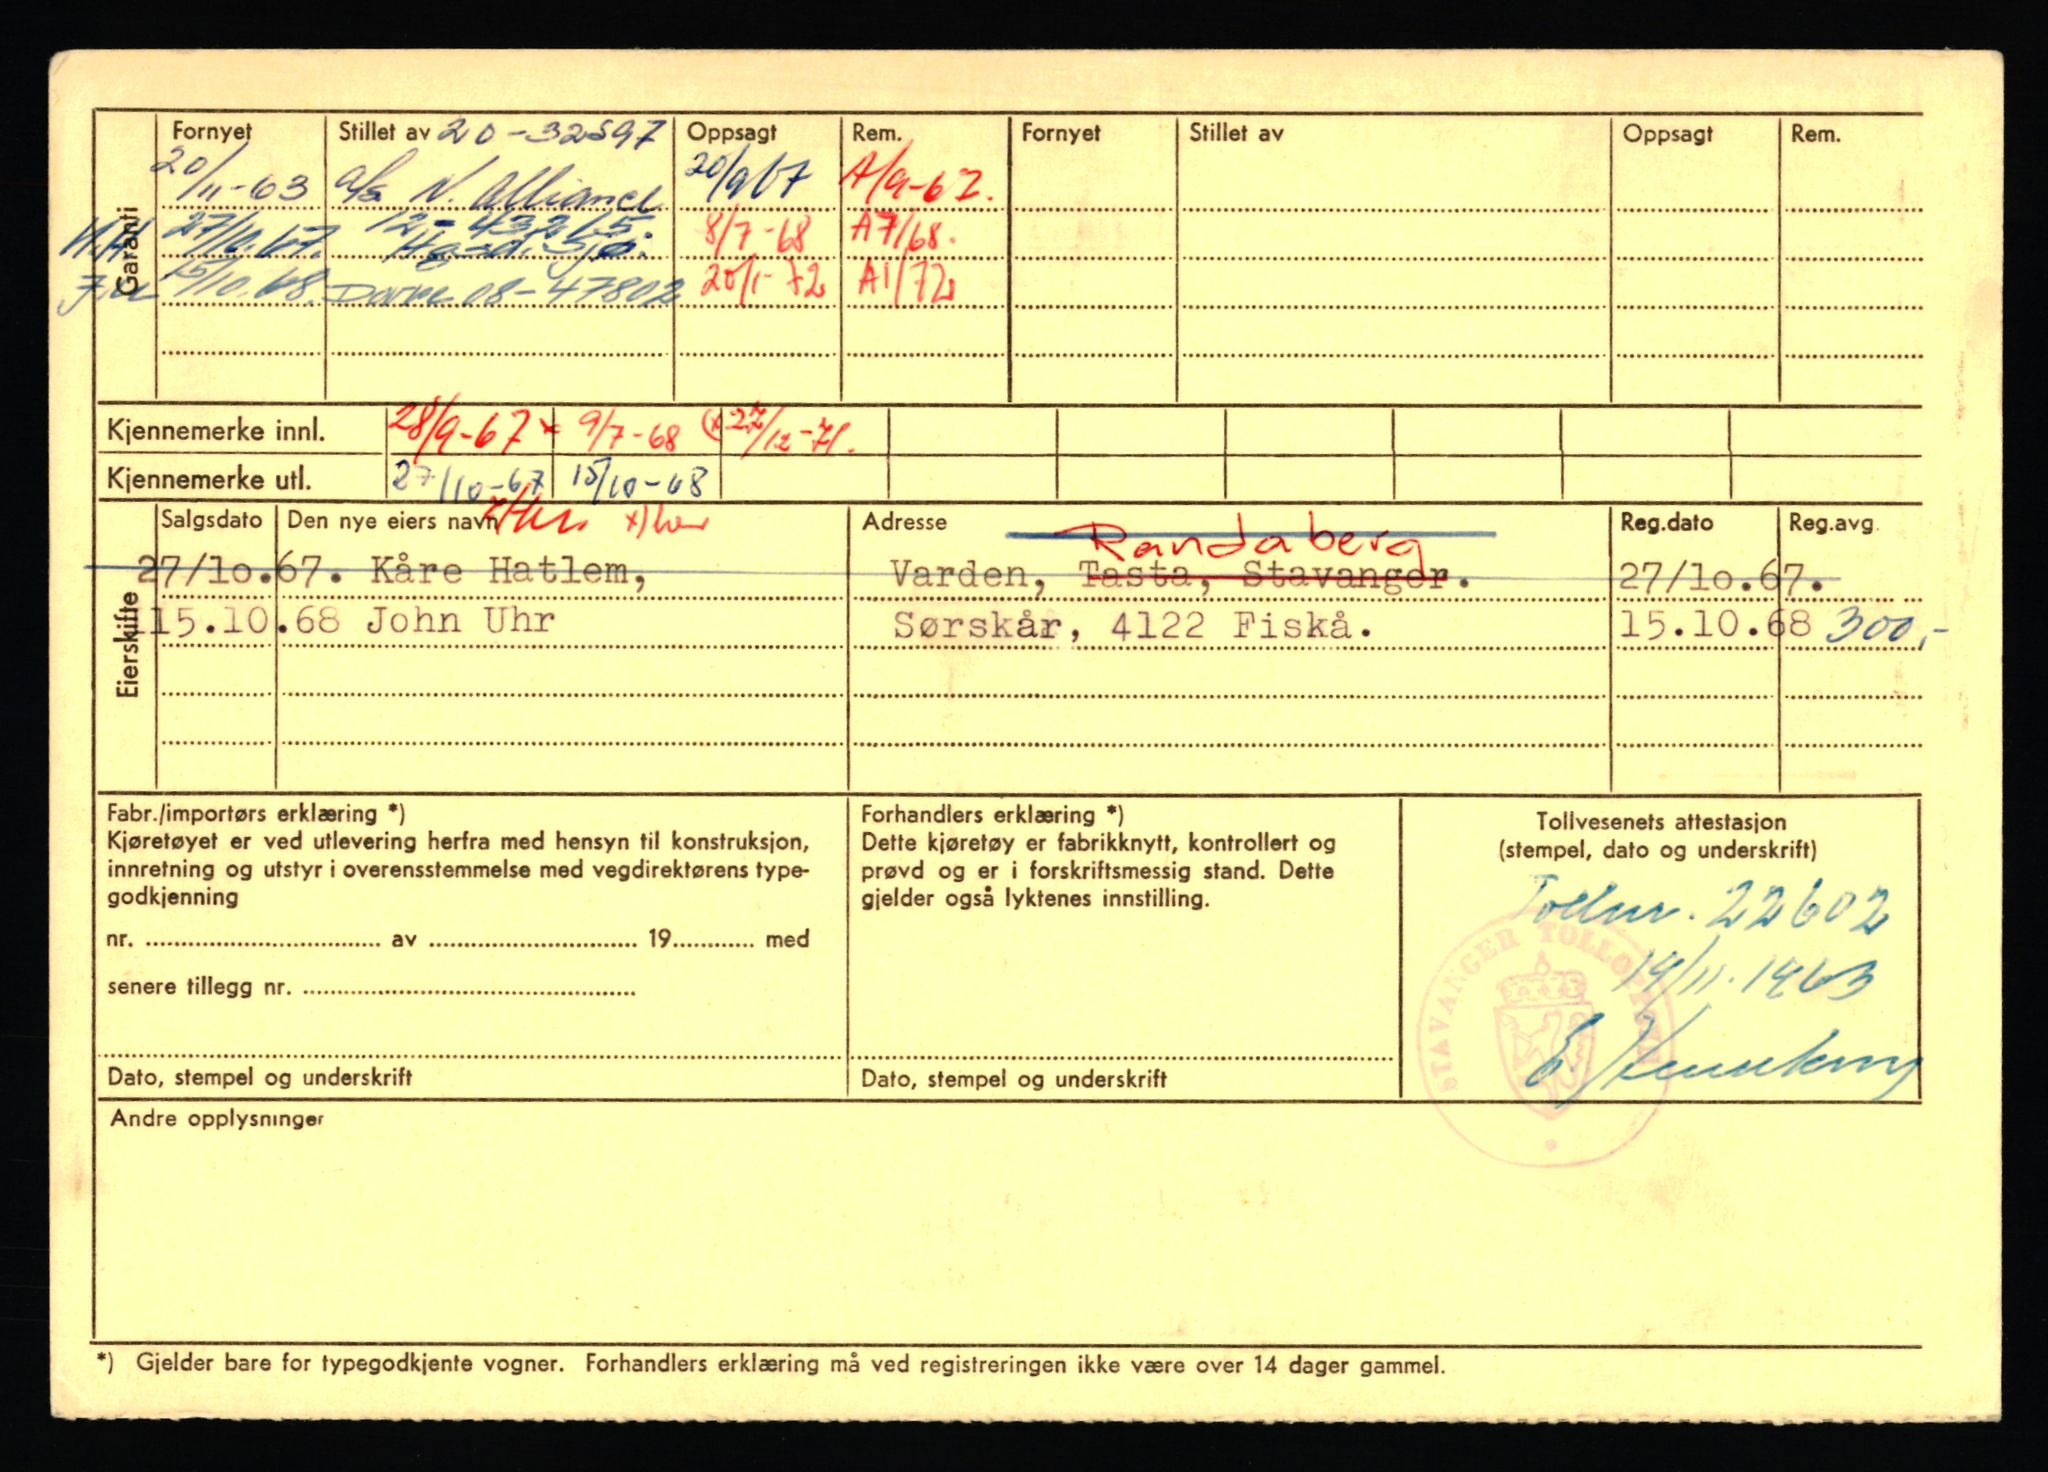 Garanti
Fornyet Stillet av 20-32597 Oppsagt Rem. Fornyet Stillet av Oppsagt Rem.
20/11-63 a/s N. Alliance 20/9 67 A/9-67.
27/10.67. 12-43215. 8/7-68 A7/68.
15/10.68. Dovre 08-47802 20/1-72 A1/72
Kjennemerke innl. 28/9-67 x 9/7-68 (x 27/12-71.
Kjennemerke utl. 27/10-67 15/10-68
Eierskifte
Salgsdato Den nye eiers navn x)her Adresse Reg.dato Reg.avg.
Randaberg
27/10.67. Kåre Hatlem, Varden, Tasta, Stavanger. 27/10.67.
115.10.68 John Uhr Sørskår, 4122 Fiskå. 15.10.68 300,-
Fabr./importørs erklæring *)
Kjøretøyet er ved utlevering herfra med hensyn til konstruksjon,
innretning og utstyr i overensstemmelse med vegdirektørens type-
godkjenning
nr. av 19 med
senere tillegg nr.
Dato, stempel og underskrift
Forhandlers erklæring *)
Dette kjøretøy er fabrikknytt, kontrollert og
prøvd og er i forskriftsmessig stand. Dette
gjelder også lyktenes innstilling.
Dato, stempel og underskrift
Tollvesenets attestasjon
(stempel, dato og underskrift)
Tollnr. 22602
19/11.1963
STAVANGER TOLLOPPSYN
Andre opplysninger
*) Gjelder bare for typegodkjente vogner. Forhandlers erklæring må ved registreringen ikke være over 14 dager gammel.